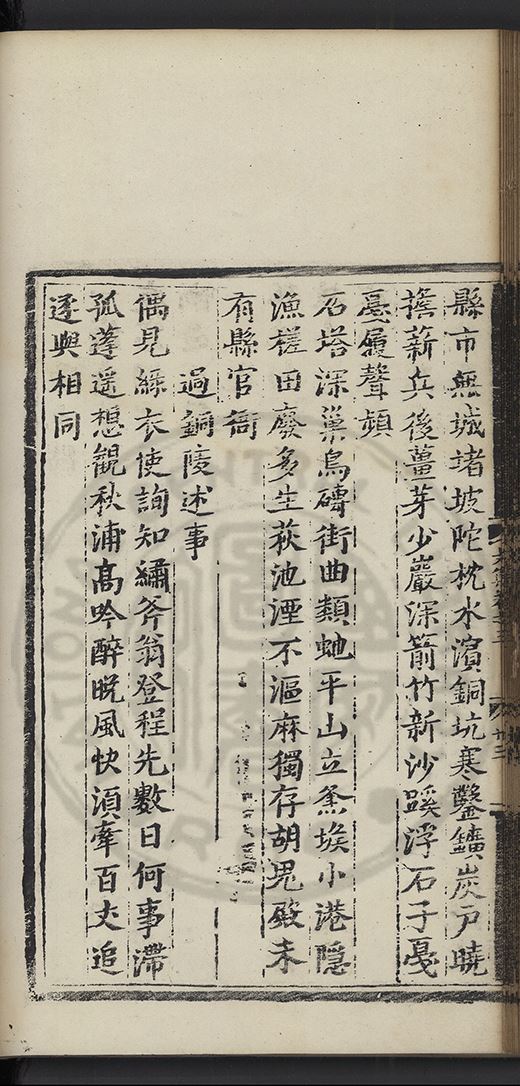 縣市無城堵坡陀枕水濱銅坑寒鑿鑛炭戸曉
擔薪兵後薑芽少巖深箭竹新沙蹊浮石子戞
戞屨聲頻
石塔深巢鳥磚街曲類虵平山立釜堠小港隱
漁槎田廢多生荻池湮不漚麻獨存胡鬼殿未
有縣官衙
過銅陵述事
偶見綵衣使詢知繡斧翁登程先數日何事滯
孤蓬遥想觀秋浦髙吟醉晚風快湏牽百丈追
逐與相同